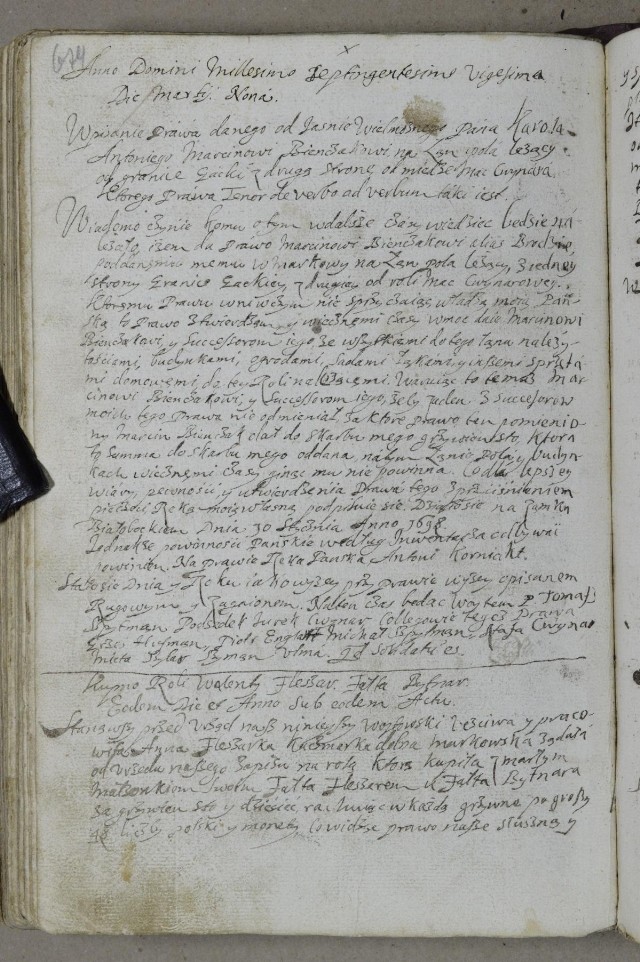 674
Anno Domini Millesimo Septingentesimo Vigesimo
Die Martij Nona.
Wpisanie Prawa danego od Jasnie Wielmoznego Pana Karola
Antoniego Marcinowi Bienczakowi, na Łan pola leżący
od granic Gacki z drugą stronę od miedze Mac Cwynara
Ktorego Prawa Tenor de verbo ad verbum taki iest.
Wiadomo czynie komu o tym wdalsze czasy wiedziec bedzie na
leżało, iżem dał Prawo Marcinowi Bienczakowi alias
poddanemu memu w Markowy na Łan pola leżący, z iedney
strony Granic Gackiey, z drugiey od roli Mac Cwynarowey.
Ktoremu Prawu wniwczym nie władzą moią Pań
ską to Prawo stwierdzam, y wiecznemi czasy wmoc daie Marcinowi
Bienczakowi, y Successorom iego, ze wszytkiemi do tego Łana należy
tosciami, budynkami, ogrodami, sadami Łąkami, y inszemi sprzęta
mi domowemi, do tey Roli nalezącemi. Waruiąc to temuz Mar
cinowi Bienczakowi, y Successorom iego, żeby żaden z Successorow
moich tego Prawa nie odmieniał, za ktore prawo ten pomienio
ny Marcin Bienczak dał do skarbu mego grzywien sto, Ktora
to Summa do skarbu mego oddana, na tym Łanie Pola, y budyn
kach wiecznemi czasy ginąć mu nie powinna. Co dla lepszey
wiary, pewnosci, y utwierdzenia Prawa tego z przycisnieniem
pieczęci Ręką moią własną podpisuie się. Działo sie na Zamku
Białobockiem Dnia 30 Stycznia Anno 1698.
Jednakze powinnosci Panskie według Inwentarza
powinien. Na Prawie Ręka Panska Antoni Korniakt.
Stało sie Dnia y Roku iako wyzey przy prawie wyzey opisanem
Rugowym y Zagaionem. Na ten czas bedąc Woytem P Tomasz
Bytman Podsędek Jurek Cwynar Collegowie tegoz Prawa
Grzes Hufman, Piotr Englatt Michał Bytman, Staszek Cwynar
Szylar Szyman
Kupno Roli Walenty Fleszar. Jaska Bytnar.
Eodem Die et Anno sub eodem Actu.
Stanąwszy przed Urząd nasz ninieyszy Woytowski ucciwa y praco
wita Anna Fleszarka Kaczmarka dolna Markowska żądała
od Urzędu naszego zapisu na rolą ktorą kupiła z martym
Małzonkiem swoim Jaśkа Fleszarem u Jaśka Bytnara
za grzywien sto y dziesięć, rachuiąc w każdą grzywnę po groszy
48 liczby polski y monety. Co widząc prawo nasze słuszną y